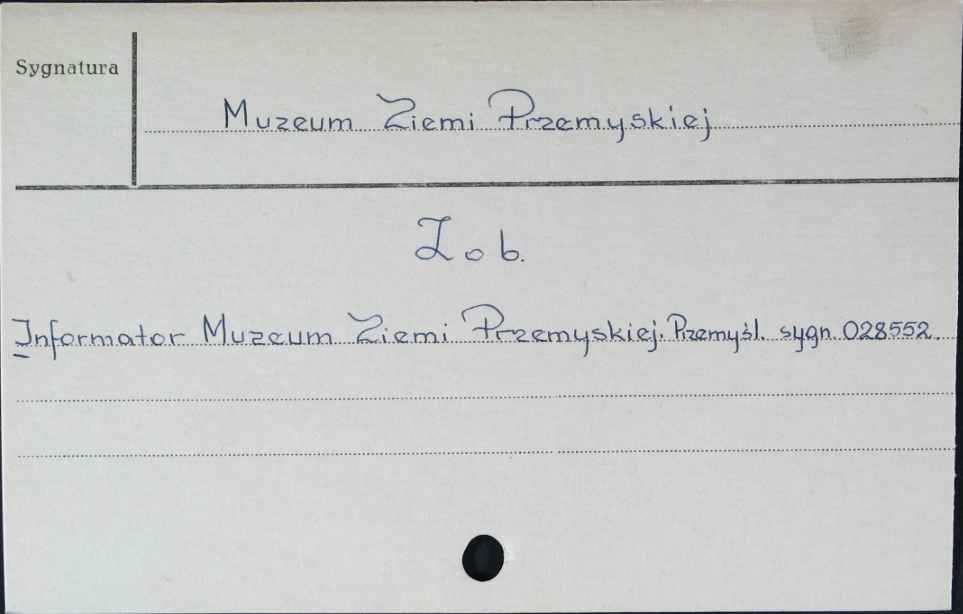 Sygnatura
Muzeum Ziemi Przemyskiej
Zob.
Informator Muzeum Ziemi Przemyskiej. Przemyśl. sygn. 028552.